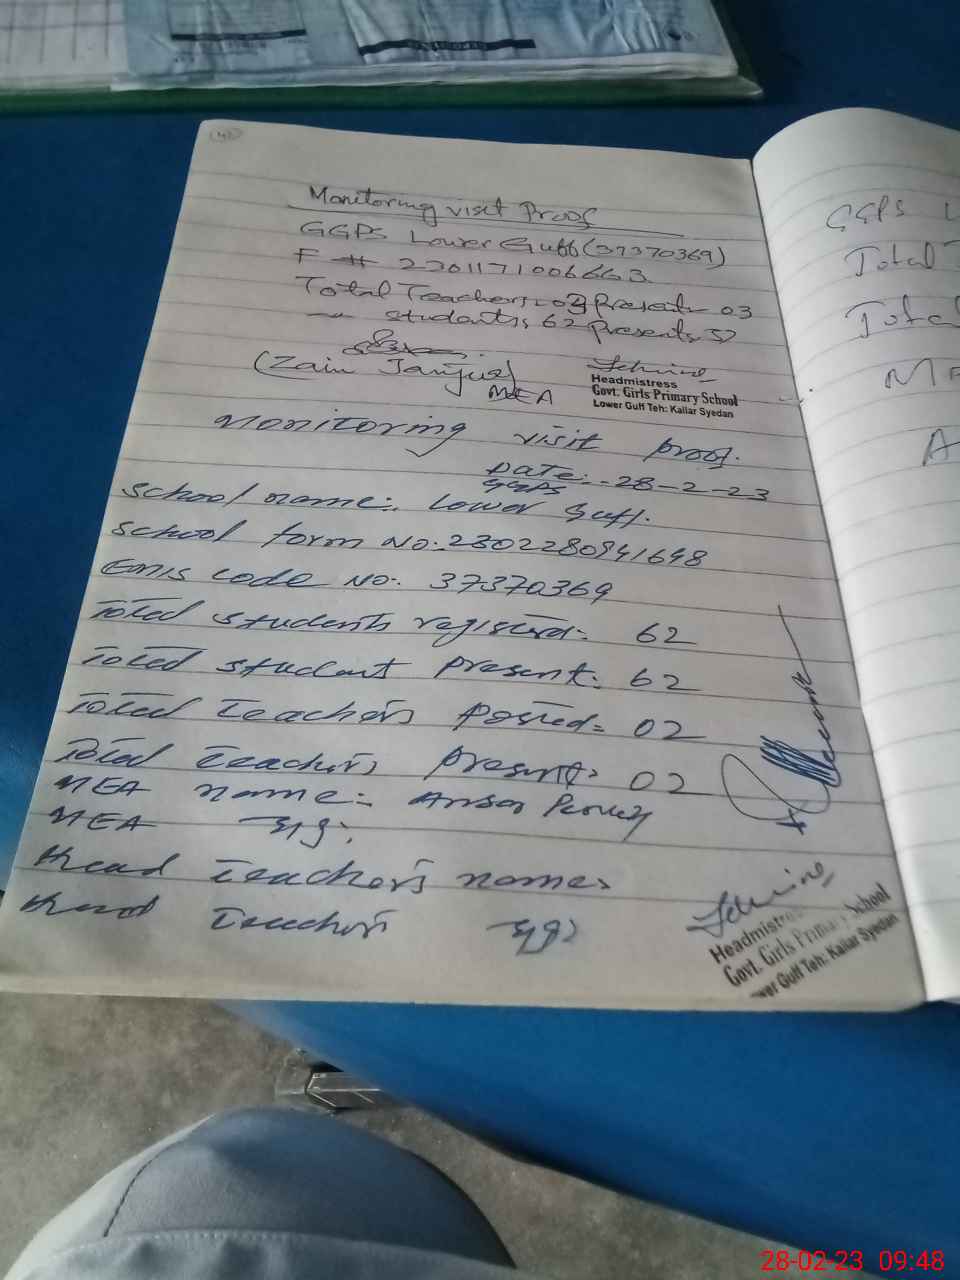 Monitoring visit Proof
GGPS Lower Guff (37370369)
F # 2301171006663
Total Teachers: 03 Present: 03
— students: 62 Presents 57
(Zain Janjua)
MEA
Headmistress
Govt. Girls Primary School
Lower Guff Teh: Kallar Syedan
Monitoring visit proof.
Date:- 28-2-23
GGPS
School name:. Lower Guff.
School form No:- 2302280941698
Emis code No:. 37370369
Total students registered:- 62
Total student present:- 62
Total teachers posted= 02
Total teachers present:- 02
MEA name:- Ansar
MEA sig:
Head teachers name:
Head teachers sig:
Headmistress
Govt. Girls Primary School
Lower Guff Teh: Kallar Syedan
GGPS
Total
Total
28-02-23 09:48